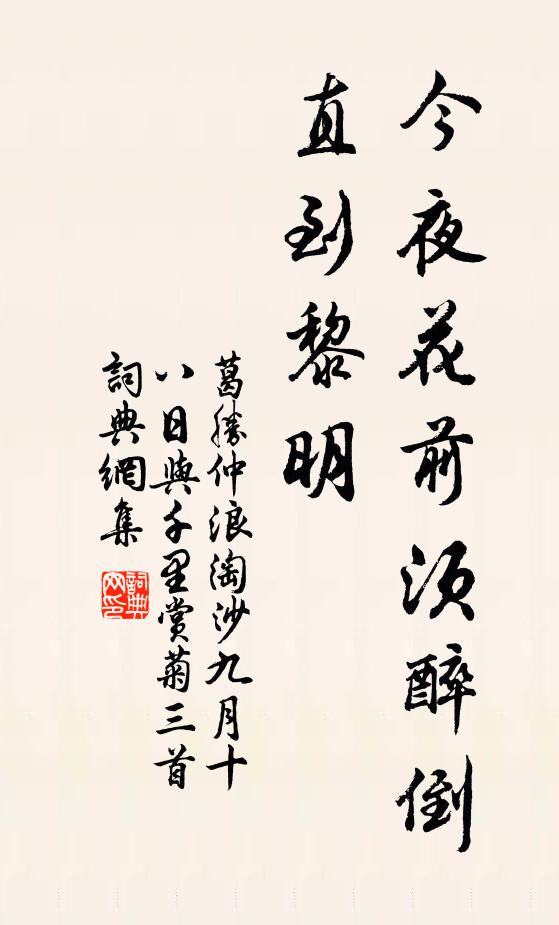 今夜花前須醉倒
直到黎明
葛勝仲浪淘沙九月十
八日與千里賞菊三首
詞典網集
詞典网印